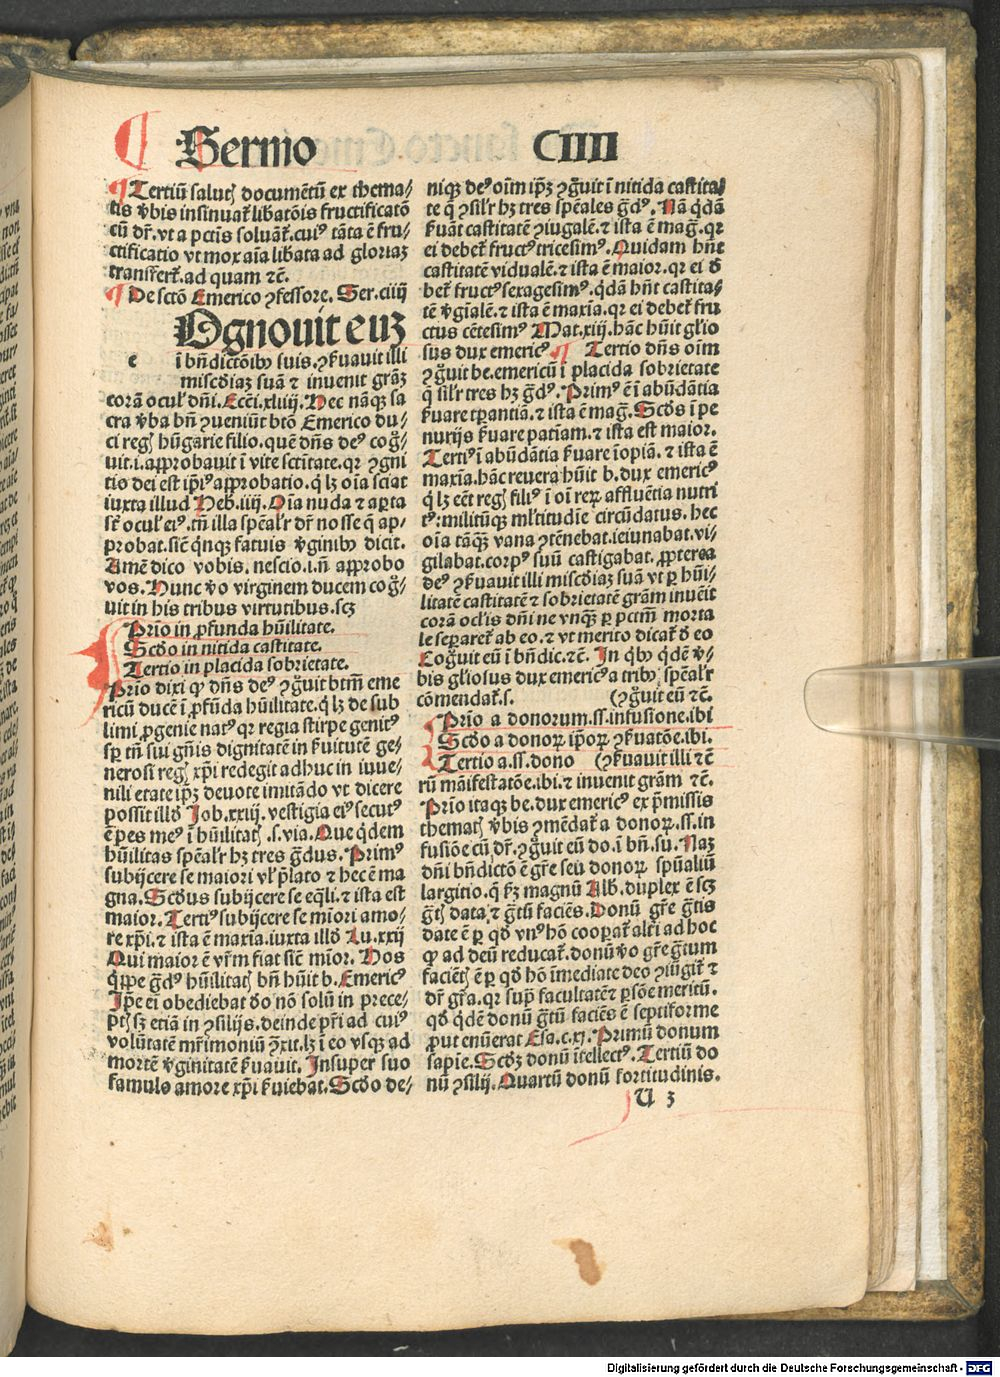 Sermo CIIII
Tertiū saluṫ documētū ex thema/
tis v̄bis insinuat̄ libatōis fructificatō
cū dr̄. vt a pctīs soluāt̄. cuiꝰ tāta ē fru/
ctificatio vt mox aīa libata ad gloriaꝫ
transfert̄. ad quam ⁊c̄.
De sctō Emerico ꝯfessore. Ser. ciiij
Ognouit euꝫ
e ī bn̄dictōibꝰ suis. ꝯẛuauit illi
miscd̄iaꝫ suā ⁊ inuenit grāꝫ
corā oculꝭ dn̄i. Eccī. xliiij. Hec nāqꝫ sa
cra v̄ba bn̄ ꝯueniūt btō Emerico du/
ci regꝭ hūgarie filio. quē dn̄s deꝰ coḡ/
uit. i. approbauit ī vite sctītate. qr ꝯgni
tis dei est ip̄iꝰ approbatio. q̄ lꝫ oīa sciat
iuxta illud Heb. iiij. Oīa nuda ⁊ aꝑta
st̄ oculꝭ eiꝰ. tn̄ illa spēalr̄ dr̄ nosse q̄ ap/
probat. sic̄ qn̄qꝫ fatuis v̄ginibꝰ dicit.
Amē dico vobis. nescio. i. n̄ approbo
vos. Nunc v̄o virginem ducem coḡ/
uit in his tribus virtutibus. scꝫ
Prīo in ꝓfunda hūilitate.
Scd̄o in nitida castitate.
Tertio in placida sobrietate.
Prīo dixi ꝙ dn̄s deꝰ ꝯḡuit btm̄ eme
ricū ducē ī ꝓfūda hūilitate. q̄ lꝫ de sub
limi ꝓgenie natꝰ qr regia stirpe genitꝰ
sꝑ tn̄ sui gn̄is dignitatē in ẛuitutē ge/
nerosi regꝭ xp̄i redegit adhuc in iuue/
nili etate ip̄ꝫ deuote imitādo vt dicere
possit illd̄ Job. xxiij. vestigia eiꝰ secutꝰ
ē pes meꝰ ī hūilitatꝭ. s. via. Que qd̄em
hūilitas spēalr̄ hꝫ tres ḡdus. Primꝰ
subijcere se maiori vl̓ p̄lato ⁊ hec ē ma
gna. Scd̄us subijcere se eq̄li. ⁊ ista est
maior. Tertiꝰ subijcere se mīori amo/
re xp̄i. ⁊ ista ē maxīa. iuxta illd̄ Lu. xxij
Qui maior ē vr̄m fiat sic̄ mīor. Hos
q̄ppe ḡdꝰ hūilitatꝭ bn̄ hūit b. Emericꝰ
Ip̄e eī obediebat d̄o nō solū in prece/
ptꝭ sꝫ etiā in ꝯsilijs. deinde pr̄i ad cuiꝰ
volūtatē mr̄imoniū ꝯ̄xit. lꝫ ī eo vsqꝫ ad
mortē v̄ginitatē ẛuauit. Insuper suo
famulo amore xp̄i ẛuiebat. Scd̄o de/
niqꝫ deꝰ oīm ip̄ꝫ ꝯḡuit ī nitida castita/
te q̄ ꝯsilr̄ hꝫ tres spēales ḡdꝰ. Nā qd̄ā
ẛuāt castitatē ꝯiugalē. ⁊ ista ē maḡ. qr
ei debet̄ fructꝰ tricesimꝰ. Quidam hn̄t
castitatē vidualē. ⁊ ista ē maior. qr ei d̄
bet̄ fructꝰ sexagesimꝰ. qd̄ā hn̄t castita/
tē v̄gialē. ⁊ ista ē maxīa. qr ei debet̄ fru
ctus cētesimꝰ Mat. xiij. hāc hūit gl̄io
sus dux emericꝰ. Tertio dn̄s oīm
ꝯḡuit be. emericū ī placida sobrietate
q̄ silr̄ tres hꝫ ḡdꝰ. Primꝰ ē ī abūdātia
ẛuare tꝑantiā. ⁊ ista ē maḡ. Scd̄s ī pe
nurijs ẛuare patīam. ⁊ ista est maior.
Tertiꝰ ī abūdātia ẛuare īopiā. ⁊ ista ē
maxīa. hāc reuera hūit b. dux emericꝰ
q̄ lꝫ eēt regꝭ filiꝰ ī oī reꝝ affluētia nutri
tꝰ: militūqꝫ ml̓titudīe circūdatus. hec
oīa tāqꝫ vana ꝯtēnebat. ieiunabat. vi/
gilabat. corpꝰ suū castigabat. ꝓpterea
deꝰ ꝯẛuauit illi miscd̄iaꝫ suā vt ꝑ hūi/
litatē castitatē ⁊ sobrietatē grām inuēit
corā oclīs dn̄i ne vnqꝫ ꝑ pctm̄ morta
le seꝑaret̄ ab eo. ⁊ vt merito dicat̄ d̄ eo
Coḡuit eū ī bn̄dic. ⁊c̄. In qͥbꝰ qd̄ē v̄/
bis gl̄iosus dux emericꝰ a tribꝰ spēalr̄
cōmendat̄. s. (ꝯḡuit eū ⁊c̄.
Prīo a donorum. ss. infusione. ibi
Scd̄o a donoꝝ ip̄oꝝ ꝯẛuatōe. ibi.
Tertio a. ss. dono (ꝯẛuauit illi ⁊c̄
rū māifestatōe. ibi. ⁊ inuenit grām ⁊c̄.
Prīo itaqꝫ be. dux emericꝰ ex p̄missis
thematꝭ v̄bis ꝯmēdat̄ a donoꝝ. ss. in
fusiōe cū dr̄. ꝯḡuit eū do. ī bn̄. su. Naꝫ
dn̄i bn̄dictō ē gr̄e seu donoꝝ sp̄ualiū
largitio. q̄ ẜꝫ magnū Alb. duplex ē scꝫ
ḡtꝭ data ⁊ ḡtū faciēs. Donū gr̄e ḡtis
date ē ꝑ qd̄ vnꝰ hō cooꝑat̄ altr̄i ad hoc
ꝙ ad deū reducat̄. donū v̄o gr̄e ḡtum
faciētꝭ ē ꝑ qd̄ hō īmediate deo ꝯiūgit̄ ⁊
dr̄ gr̄a. qr suꝑ facultatē ⁊ ꝑsōe meritū.
qd̄ qd̄ē donū ḡtū faciēs ē septiforme
ꝓut enūerat Esa. c. xj. Primū donum
sapīe. Scd̄ꝫ donū ītellectꝰ. Tertiū do
nū ꝯsilij. Quartū donū fortitudinis.
U 3
Digitalisierung gefördert durch die Deutsche Forschungsgemeinschaft - DFG